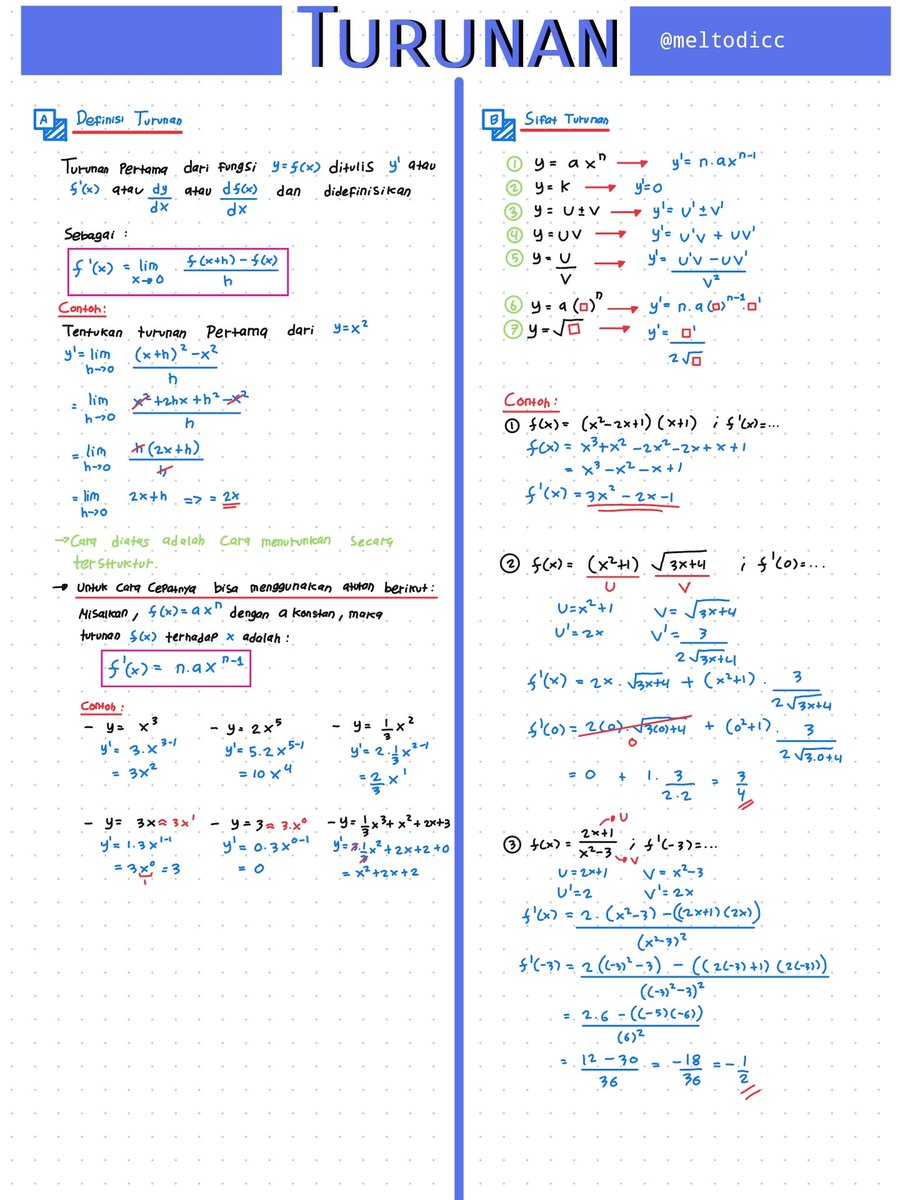 TURUNAN
@meltodicc
A Definisi Turunan
Turunan Pertama dari fungsi y=f(x) ditulis y' atau
f'(x) atau dy/dx atau df(x)/dx dan didefinisikan
Sebagai :
f'(x) = lim x→0 (f(x+h) - f(x))/h
Contoh:
Tentukan turunan Pertama dari y=x²
y' = lim h→0 ((x+h)² - x²)/h
= lim h→0 (x² + 2hx + h² - x²)/h
= lim h→0 h(2x+h)/h
= lim h→0 2x+h => = 2x
→ Cara diatas adalah Cara menurunkan Secara
terstruktur.
→ Untuk Cara Cepatnya bisa menggunakan aturan berikut:
Misalkan, f(x)=axⁿ dengan a konstan, maka
turunan f(x) terhadap x adalah:
f'(x) = n.axⁿ⁻¹
Contoh:
- y= x³ - y= 2x⁵ - y= 1/3 x²
y'= 3.x³⁻¹ y'= 5.2x⁵⁻¹ y'= 2.1/3x²⁻¹
= 3x² = 10x⁴ = 2/3.x¹
- y= 3x ≈ 3x¹ - y=3 ≈ 3.x⁰ - y= 1/3x³+x²+2x+3
y'= 1.3x¹⁻¹ y'= 0.3x⁰⁻¹ y'= 3.1/3x²+2x+2+0
= 3x⁰ = 3 = 0 = x²+2x+2
1
B Sifat Turunan
① y = axⁿ → y'= n.axⁿ⁻¹
② y = k → y'=0
③ y = U±V → y'= U'±V'
④ y = UV → y'= U'V + UV'
⑤ y = U/V → y'= (U'V - UV')/V²
⑥ y = a(□)ⁿ → y'= n.a(□)ⁿ⁻¹.□'
⑦ y = √□ → y'= □'/(2√□)
Contoh:
① f(x)= (x²-2x+1)(x+1) ; f'(x)=...
f(x)= x³+x²-2x²-2x+x+1
= x³-x²-x+1
f'(x) = 3x²-2x-1
② f(x)= (x²+1) √(3x+4) ; f'(0)=...
U V
U=x²+1 V=√(3x+4)
U'=2x V'= 3/(2√(3x+4))
f'(x) = 2x.√(3x+4) + (x²+1). 3/(2√(3x+4))
f'(0)= 2(0).√(3(0)+4) + (0²+1). 3/(2√(3.0+4))
0
= 0 + 1. 3/(2.2) = 3/4
③ f(x)= (2x+1)/(x²-3) →U →V ; f'(-3)=...
U=2x+1 V=x²-3
U'=2 V'=2x
f'(x) = (2.(x²-3) - ((2x+1)(2x)))/(x²-3)²
f'(-3) = (2((-3)²-3) - ((2(-3)+1)(2(-3))))/((-3)²-3)²
= (2.6 - ((-5)(-6)))/(6)²
= (12-30)/36 = -18/36 = -1/2